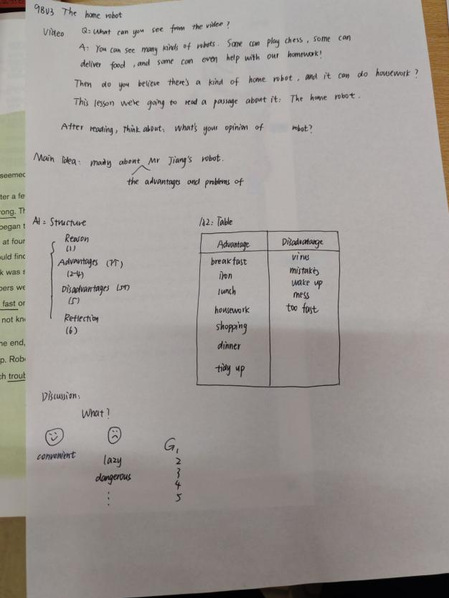 9BU3 The home robot
Video Q: What can you see from the video?
A: You can see many kinds of robots. Some can play chess, some can
deliver food, and some can even help with our homework!
Then do you believe there's a kind of home robot, and it can do housework?
This lesson we're going to read a passage about it: The home robot.
After reading, think about: What's your opinion of robot?
Main Idea: mainly about Mr Jiang's robot.
the advantages and problems of
A1: Structure
Reason
(1)
Advantages
(2-4)
Disadvantages
(5)
Reflection
(6)
A2: Table
Advantage Disadvantage
breakfast virus
iron mistakes
lunch wake up
housework mess
shopping too fast
dinner
tidy up
Discussion:
What?
convenient lazy
dangerous
G1
2
3
4
5
seemed
fast or
not kno